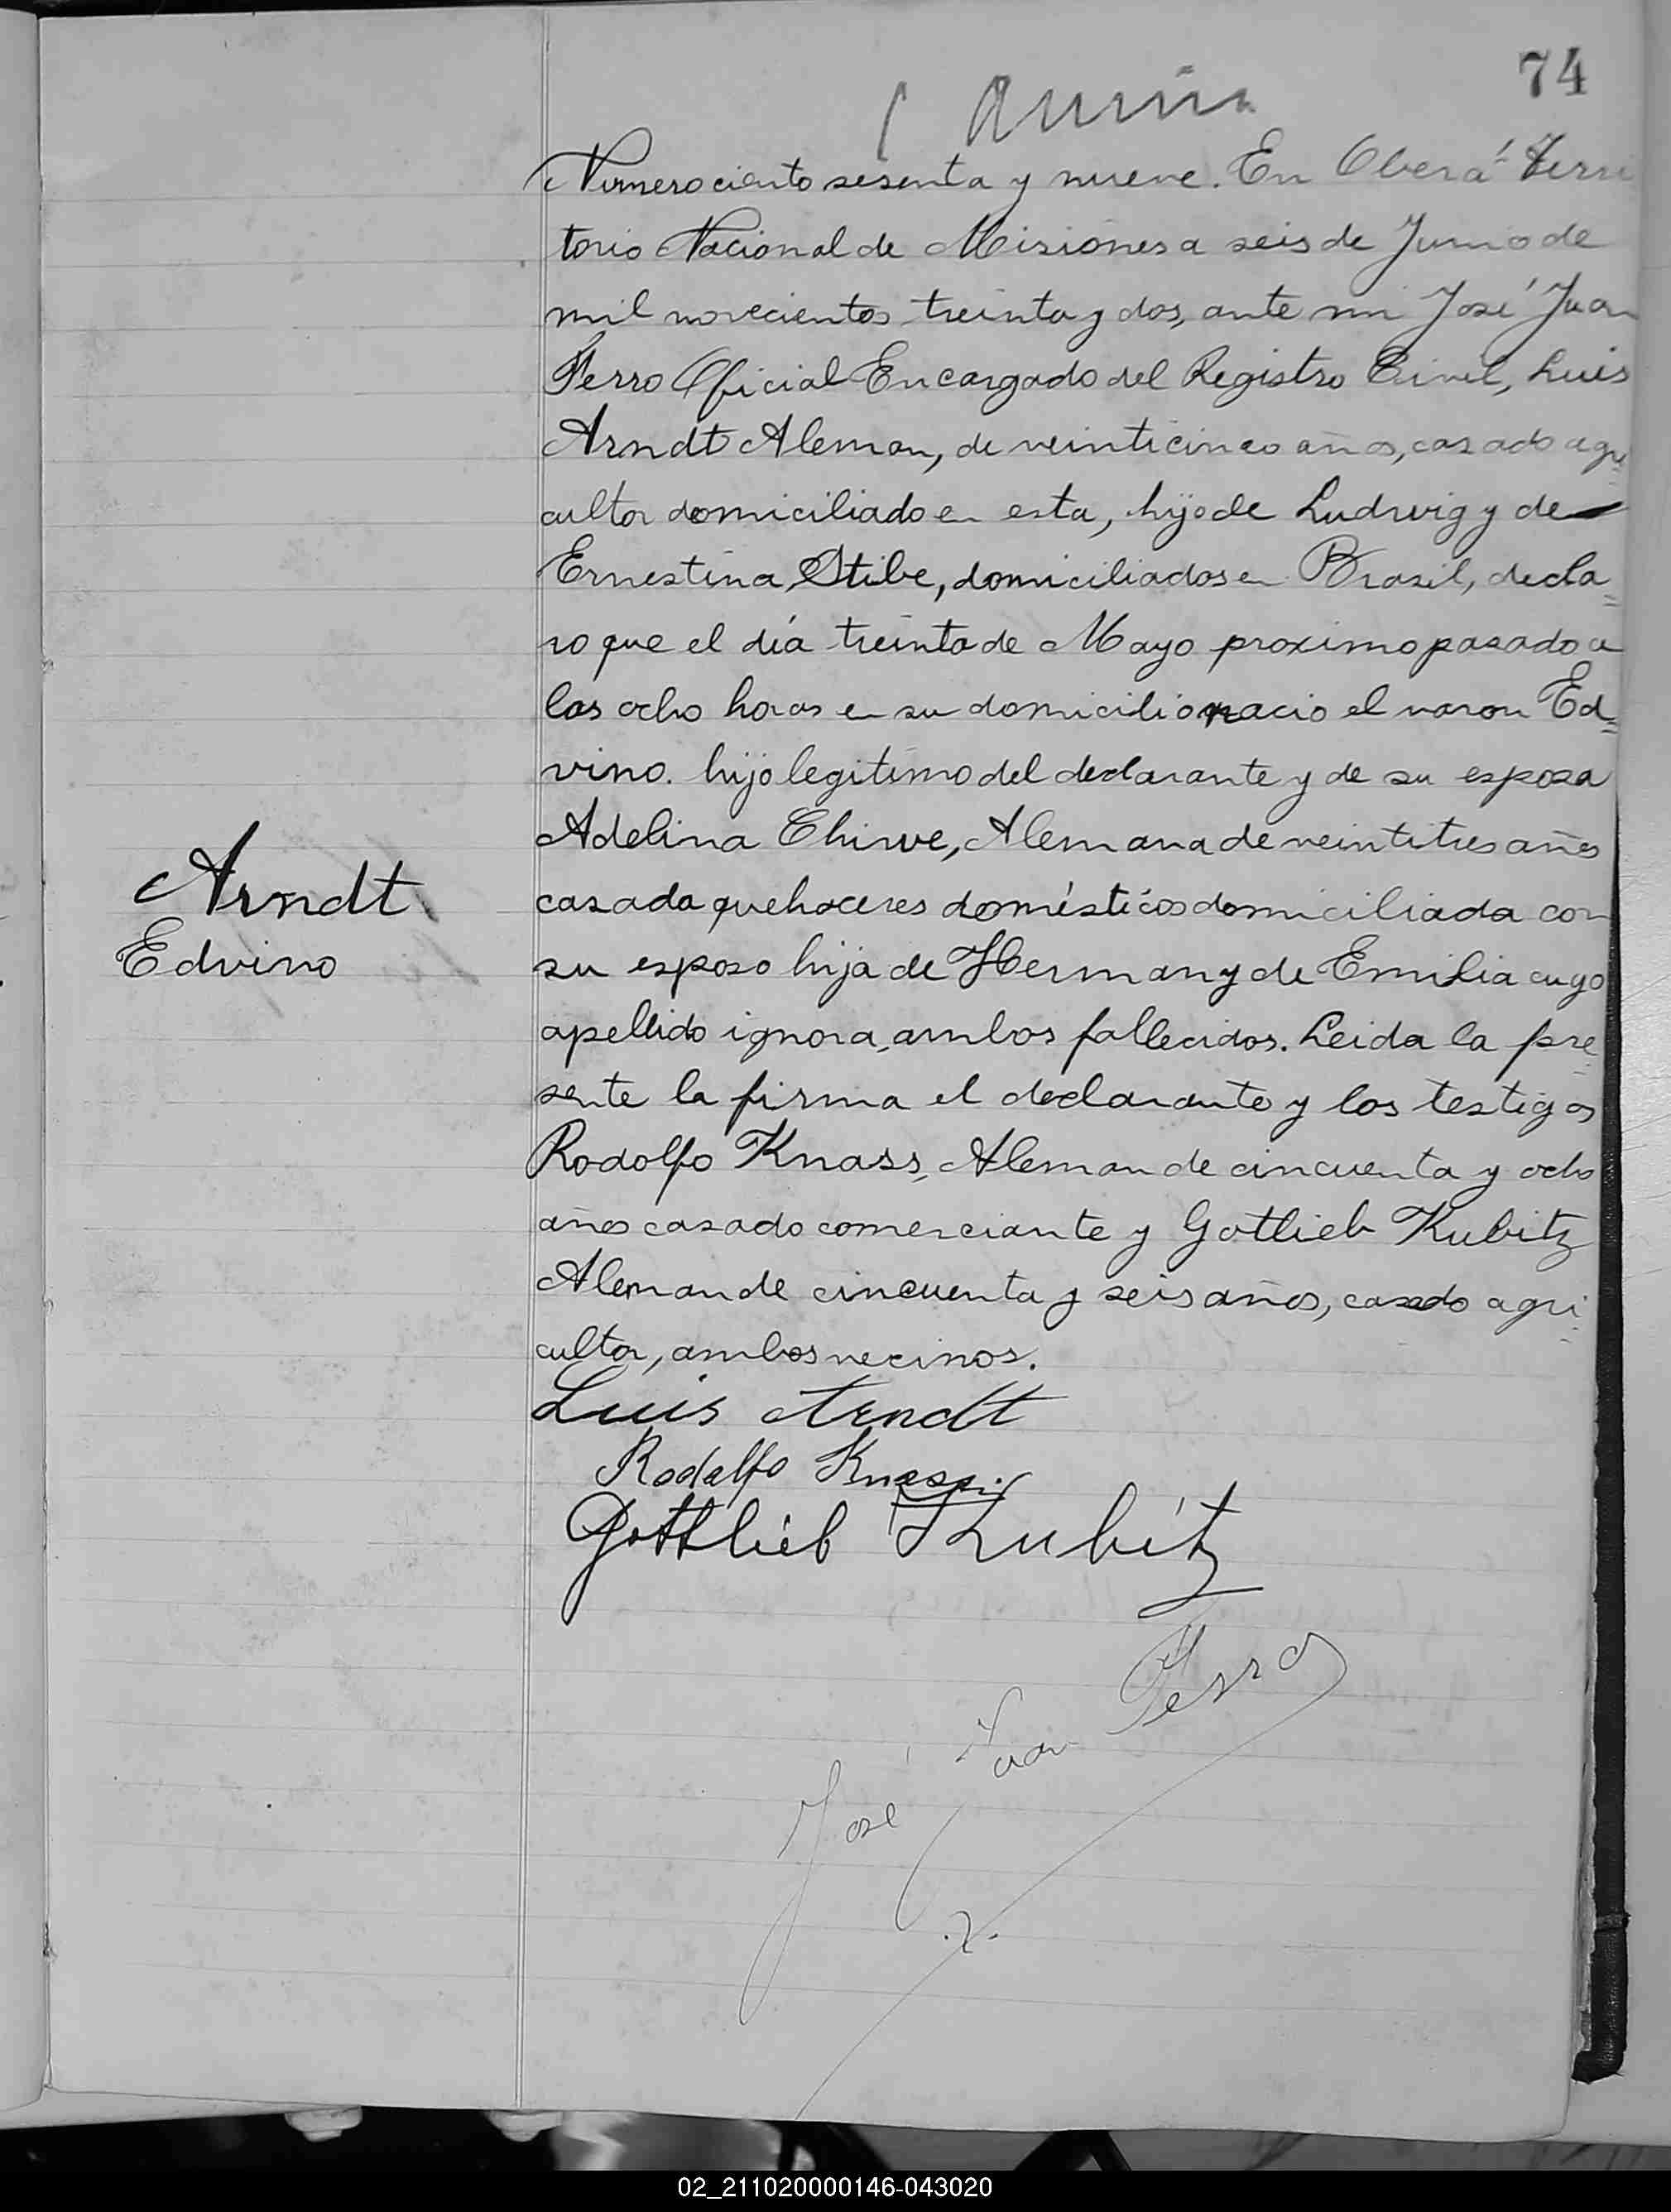 74
Numero ciento sesenta y nueve. En Oberá Terri
torio Nacional de Misiones a seis de Junio de
mil novecientos treinta y dos, ante mi José Juan
Ferro Oficial Encargado del Registro Civil, Luis
Arndt Aleman, de veinticinco años, casado agri=
cultor domiciliado en esta, hijo de Ludwig y de
Ernestina Stibe, domiciliados en Brasil, decla=
ro que el día treinta de Mayo proximo pasado a
las ocho horas en su domicilio nacio el varon Ed=
vino. hijo legitimo del declarante y de su esposa
Adelina Chirve, Alemana de veintitres años
casada quehaceres domésticos domiciliada con
Arndt
Edvino
su esposo hija de Herman y de Emilia cuyo
apellido ignora, ambos fallecidos. Leida la pre=
sente la firma el declarante y los testigos
Rodolfo Knass, Aleman de cincuenta y ocho
años casado comerciante y Gotlieb Kubitz
Aleman de cincuenta y seis años, casado agri=
cultor, ambos vecinos.
Luis Arndt
Rodolfo
Gottlieb Kubitz
José Juan Ferro
02_211020000146-043020